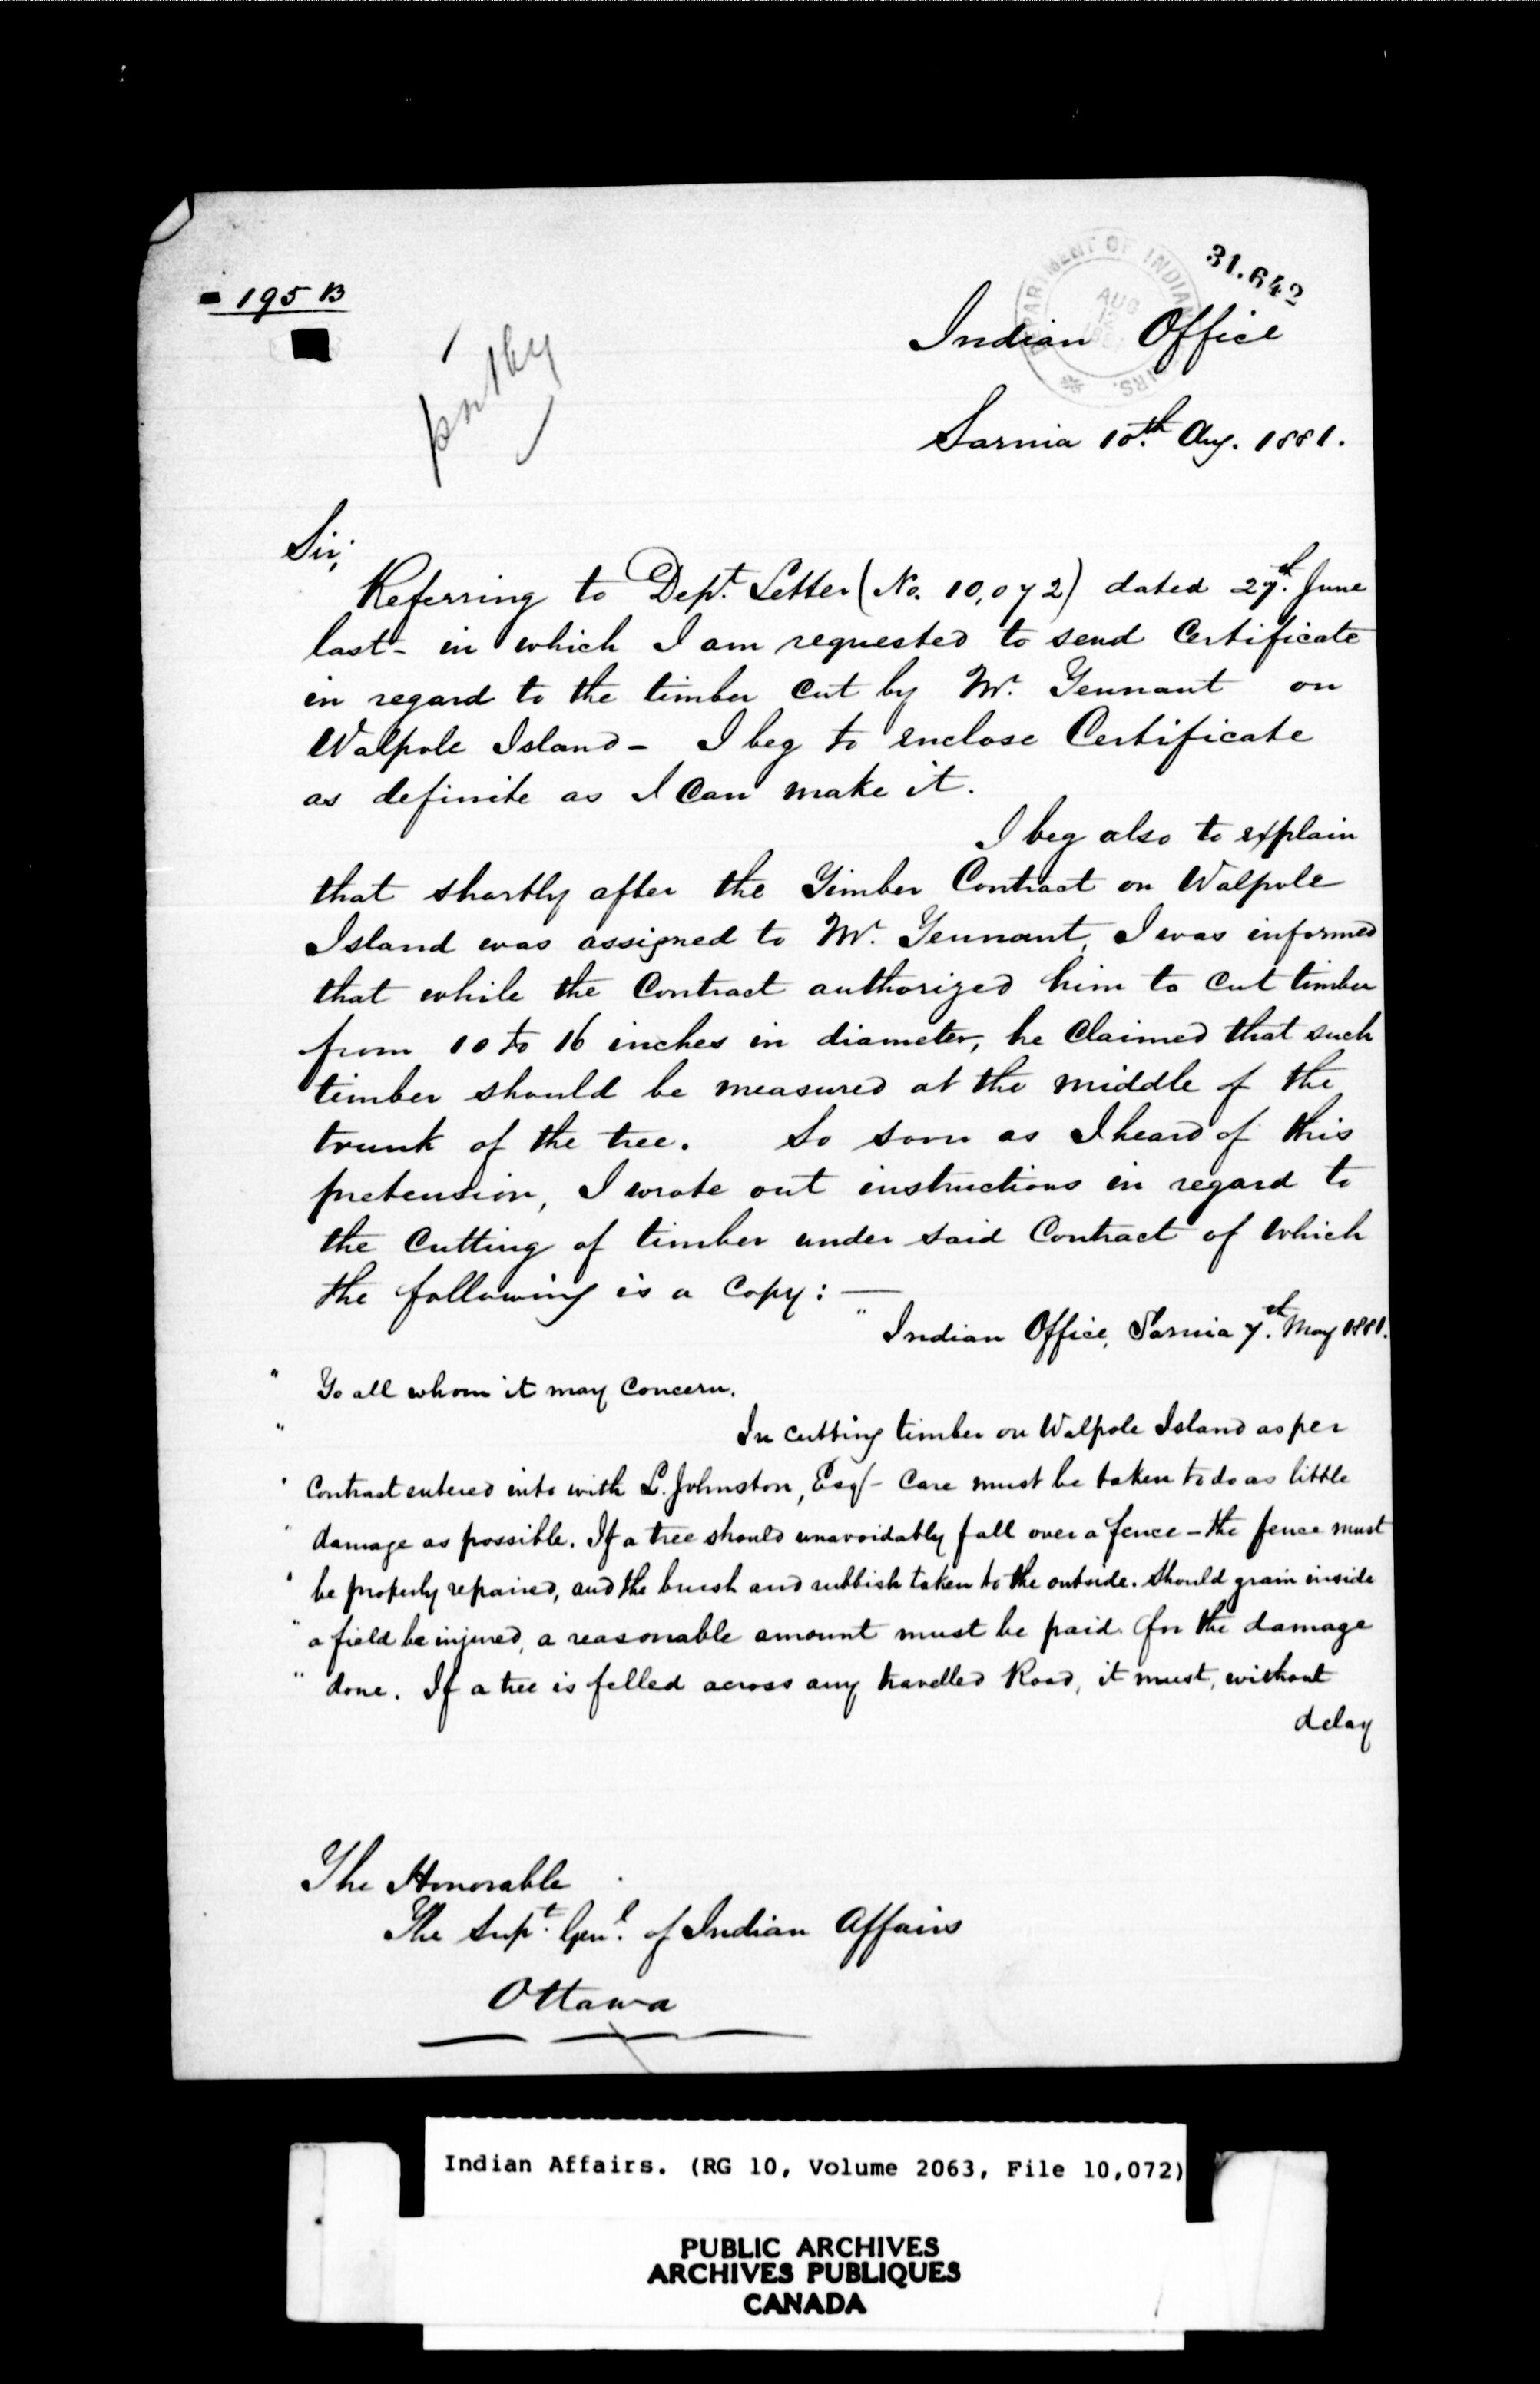 31.642
195 B
DEPARTMENT OF INDIAN AFFAIRS.
AUG
Indian Office
Sarnia 10th. Aug. 1881.
Sir;
Referring to Dept. Letter (No. 10,072) dated 27th. June
last - in which I am requested to send Certificate
in regard to the timber cut by Mr. Tennant on
Walpole Island - I beg to enclose Certificate
as definite as I can make it.
I beg also to explain
that shortly after the Timber Contract on Walpole
Island was assigned to Mr. Tennant, I was informed
that while the Contract authorized him to cut timber
from 10 to 16 inches in diameter, he claimed that such
timber should be measured at the middle of the
trunk of the tree. So soon as I heard of this
pretension, I wrote out instructions in regard to
the cutting of timber under said Contract of which
the following is a Copy: —
" Indian Office, Sarnia 7th. May 1881.
" To all whom it may concern.
" In cutting timber on Walpole Island as per
" Contract entered into with L. Johnston, Esq - Care must be taken to do as little
" damage as possible. If a tree should unavoidably fall over a fence - the fence must
" be properly repaired, and the brush and rubbish taken to the outside. Should grain inside
" a field be injured, a reasonable amount must be paid for the damage
" done. If a tree is felled across any travelled Road, it must, without
delay
The Honorable
The Supt. Genl. of Indian Affairs
Ottawa
Indian Affairs. (RG 10, Volume 2063, File 10,072)
PUBLIC ARCHIVES
ARCHIVES PUBLIQUES
CANADA